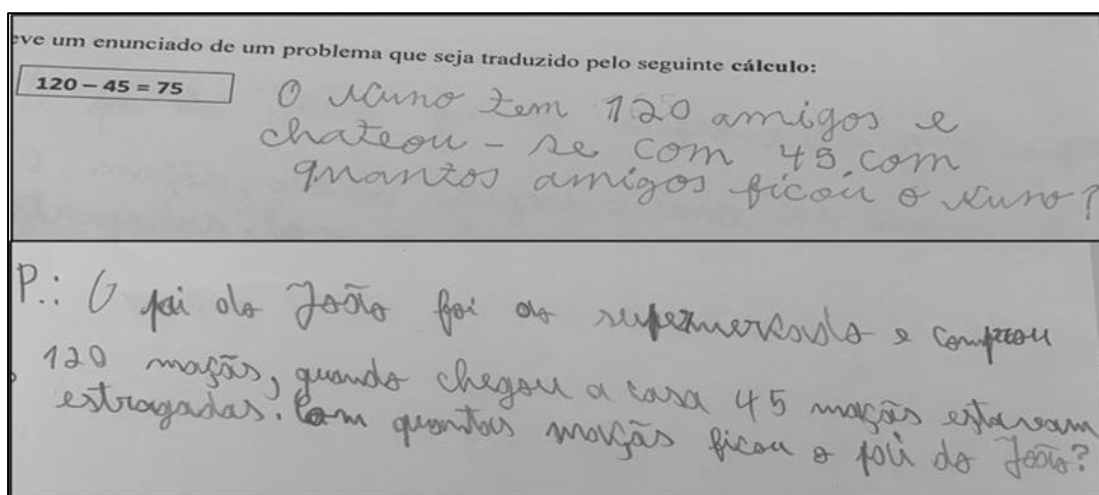 eve um enunciado de um problema que seja traduzido pelo seguinte cálculo:
120 – 45 = 75
O Nuno tem 120 amigos e
chateou-se com 45, com
quantos amigos ficou o Nuno?
P.: O pai do João foi ao supermercado e comprou
120 maçãs, quando chegou a casa 45 maçãs estavam
estragadas. Com quantas maçãs ficou o pai do João?